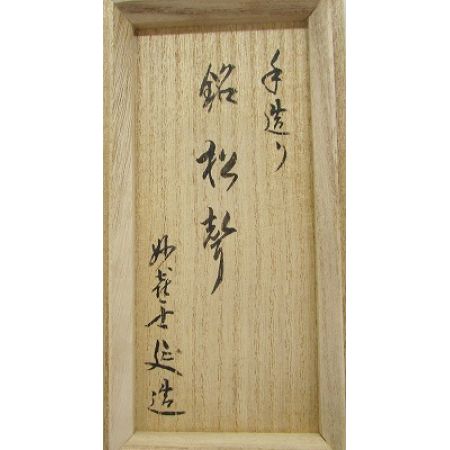 手造り
銘 松聲
妙喜庵造